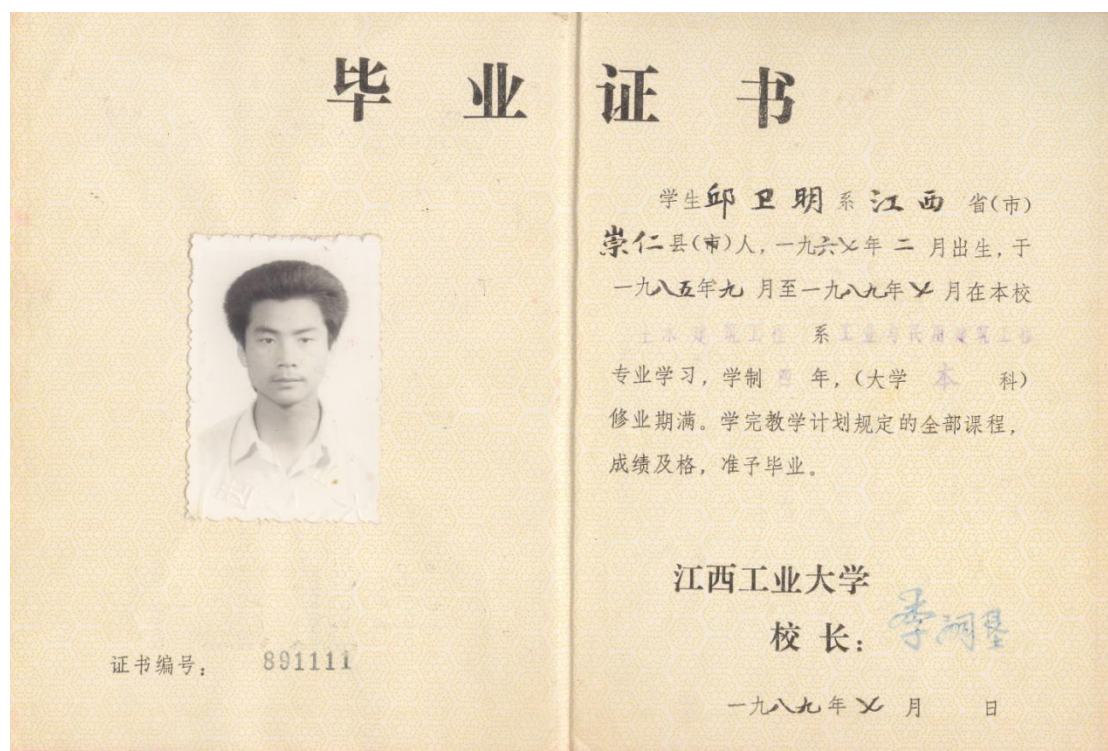 毕业证书
证书编号：891111
学生邱卫明系江西省(市)
崇仁县(市)人，一九六七年二月出生，于
一九八五年九月至一九八九年七月在本校
土木建筑工程系工业与民用建筑工程
专业学习，学制四年，(大学本科)
修业期满。学完教学计划规定的全部课程，
成绩及格，准予毕业。
江西工业大学
校长：
一九八九年七月 日